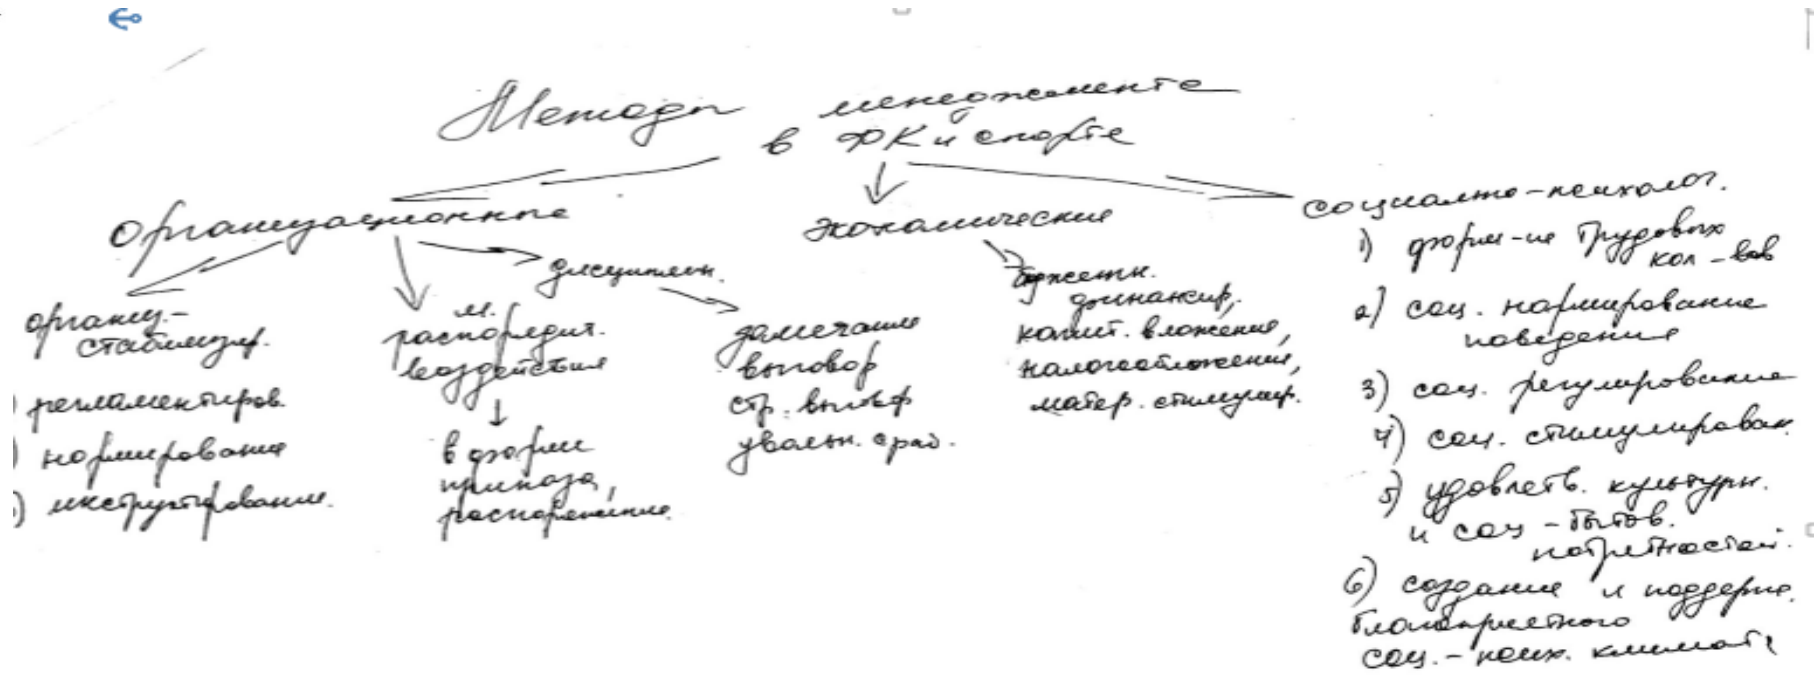 Методы менеджмента
в ФК и спорте
Организационные
организ.-
стабилизир.
регламентиров.
нормирование
инструктирование.
м.
распорядит.
воздействия
в форме
приказа,
распоряжение.
дисциплин.
замечание
выговор
стр. выговор
увольн.
экономические
бюджетн.
финансир,
капит. вложение,
налогообложение,
матер. стимулир.
социально-психолог.
1) форм-ие трудовых
кол-вов
2) соц. нормирование
поведения
3) соц. регулирование
4) соц. стимулирован.
5) удовлетв. культурн.
и соц-бытов.
потребностей.
6) создание и поддерж.
благоприятного
соц.-псих. климата